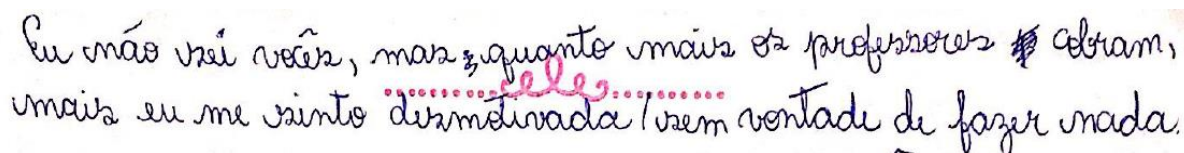 Eu não sei vocês, mas, quanto mais os professores cobram,
ele
mais eu me sinto desmotivada / sem vontade de fazer nada.